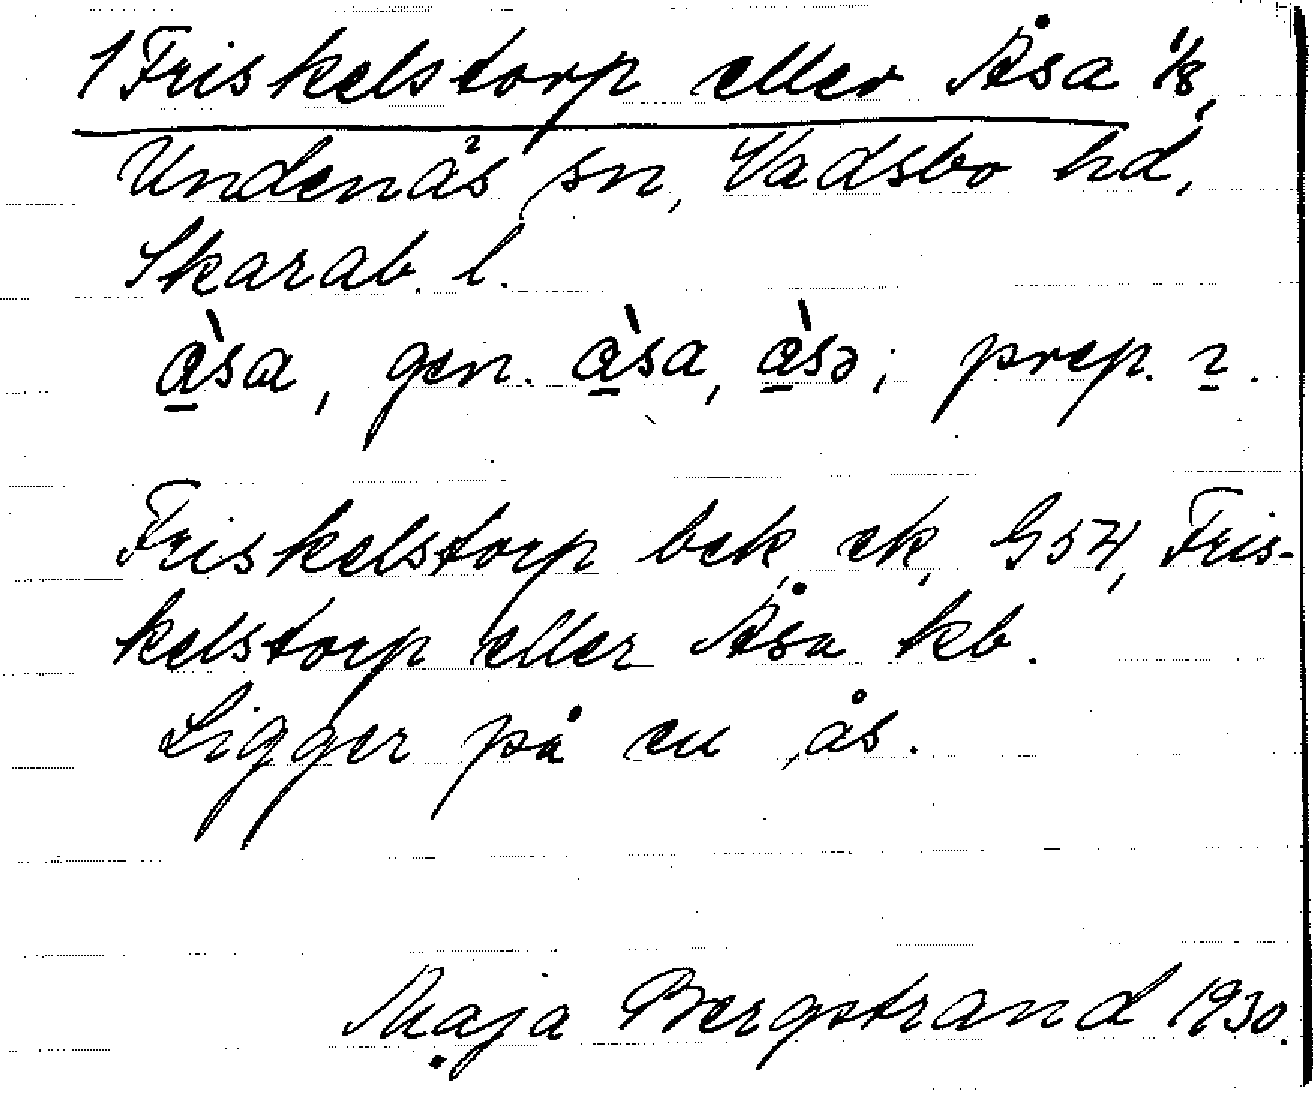 1 Friskelstorp eller Åsa 1/8,
Undenäs sn, Vadsbo hd,
Skarab. l.
a̠̍sa, gen. a̠̍sa, a̠̍sə; prep. 2̠.
Friskelstorp bek, ek, G 54, Fris-
kelstorp eller Åsa kb.
Ligger på en ås.
Maja Bergstrand 1930.